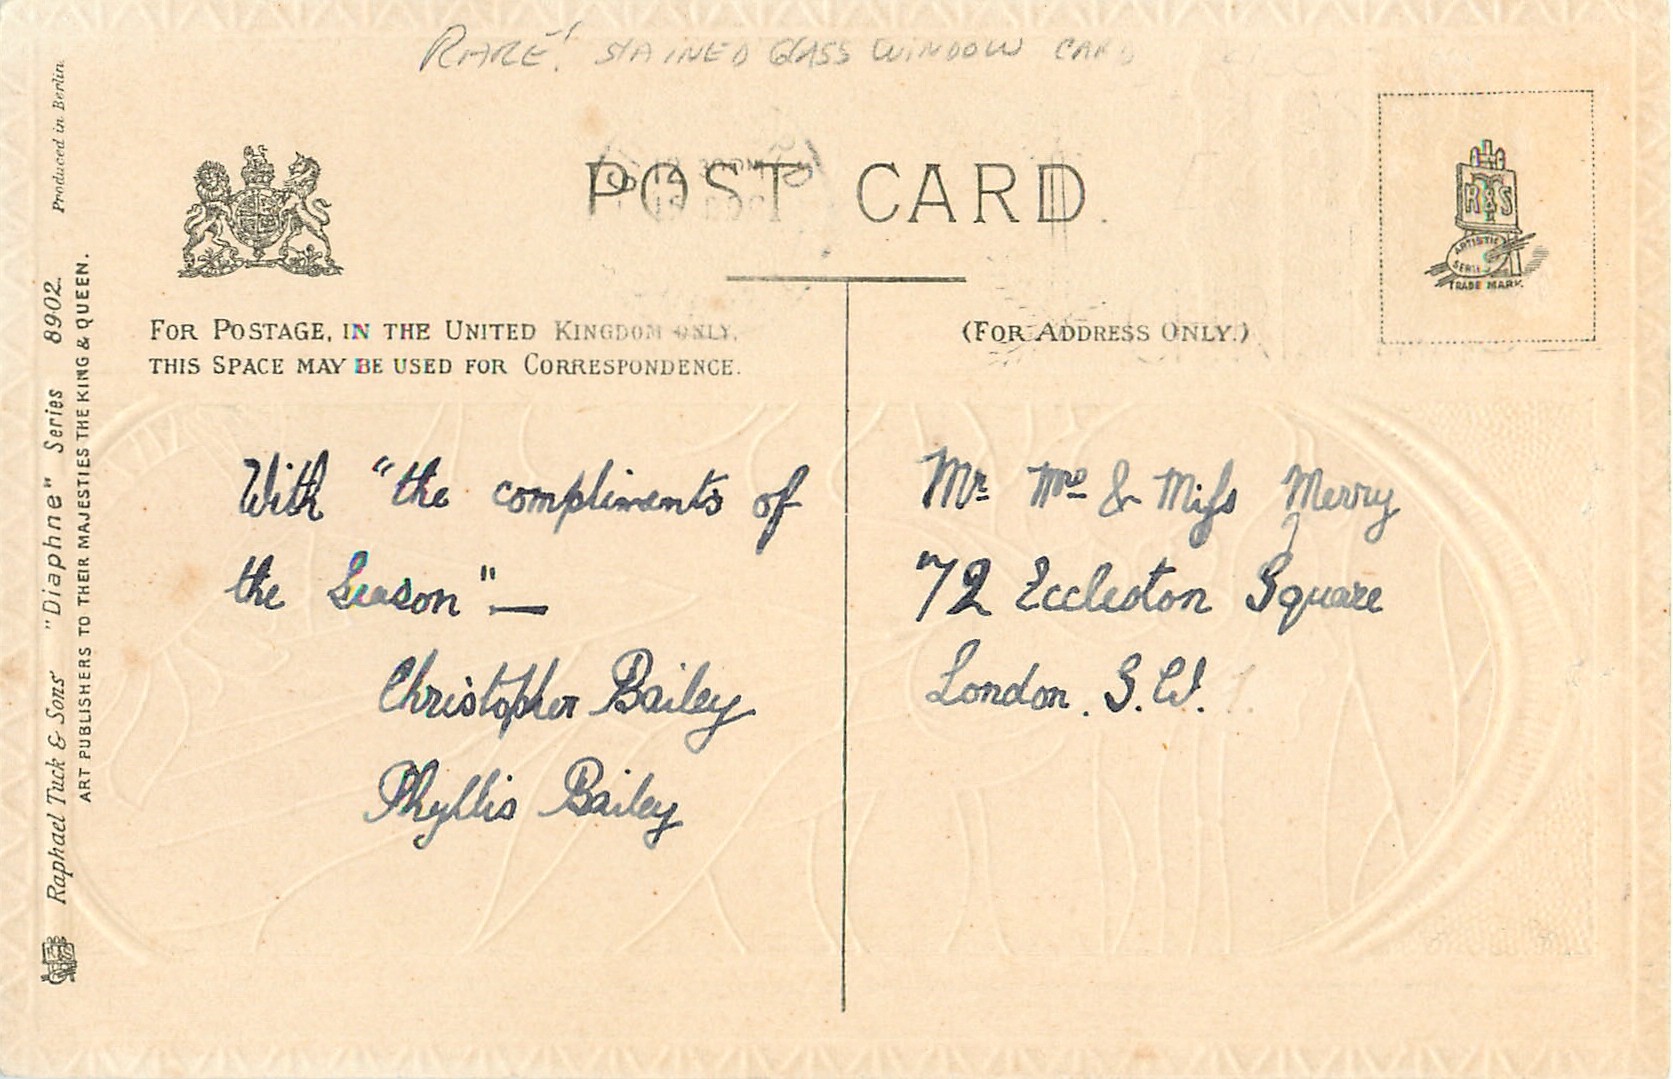 RARE! STAINED GLASS WINDOW CARD
POST CARD.
R & S
ARTISTIC
SERIES
TRADE MARK.
FOR POSTAGE, IN THE UNITED KINGDOM ONLY,
THIS SPACE MAY BE USED FOR CORRESPONDENCE.
(FOR ADDRESS ONLY.)
With "the compliments of
the Season"—
Christopher Bailey
Phyllis Bailey
Mr. Mrs. & Miss Merry
72 Eccleston Square
London. S.W.
Raphael Tuck & Sons' "Diaphne" Series 8902. Produced in Berlin.
ART PUBLISHERS TO THEIR MAJESTIES THE KING & QUEEN.